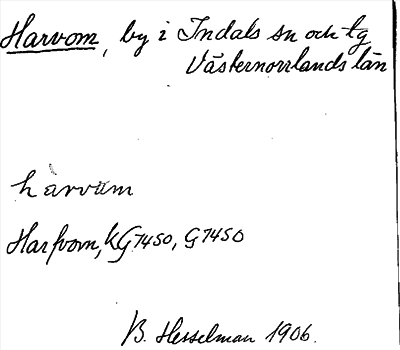 Harvom, by i Indals sn och tg
Västernorrlands län
hàrvùm
Harfvom, KG7450, G7450
B. Hesselman 1906.